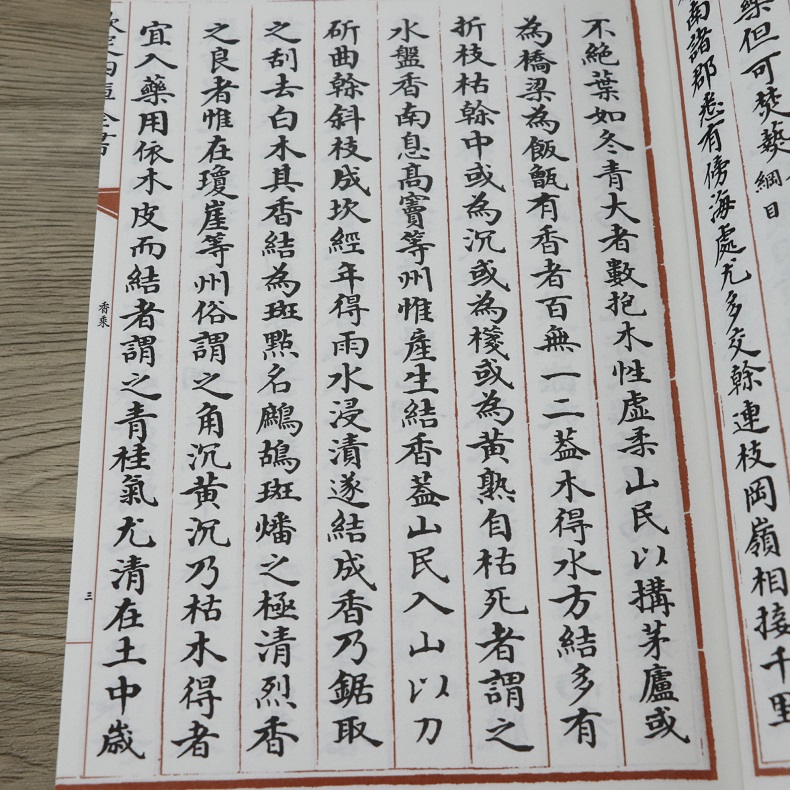 藥但可焚爇綱目
南諸郡悉有傍海處尤多交幹連枝岡嶺相接千里
不絶葉如冬青大者數抱木性虛柔山民以搆茅廬或
為橋梁為飯甑有香者百無一二葢木得水方結多有
折枝枯幹中或為沉或為棧或為黄熟自枯死者謂之
水盤香南息高竇等州惟産生結香葢山民入山以刀
斫曲幹斜枝成坎經年得雨水浸漬遂結成香乃鋸取
之刮去白木其香結為斑點名鷓鴣斑燔之極清烈香
之良者惟在瓊崖等州俗謂之角沉黄沉乃枯木得者
宜入藥用依木皮而結者謂之青桂氣尤清在土中歳
欽定四庫全書
香乗
三